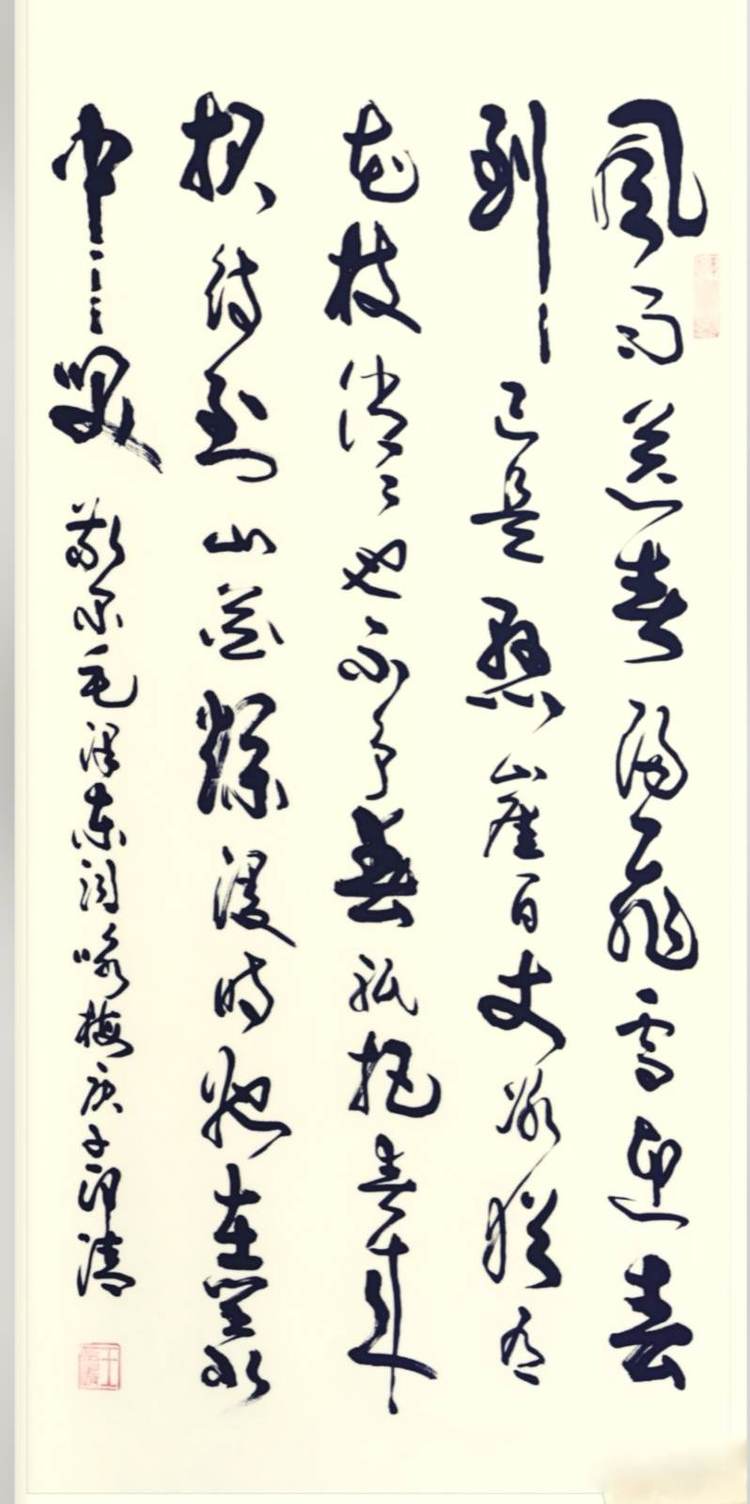 風雨送春歸飛雪迎春
到已是懸崖百丈冰猶有
花枝俏々也不争春祇把春来
报待到山花爛漫時她在叢
中笑 敬录毛泽东词咏梅庚子印清